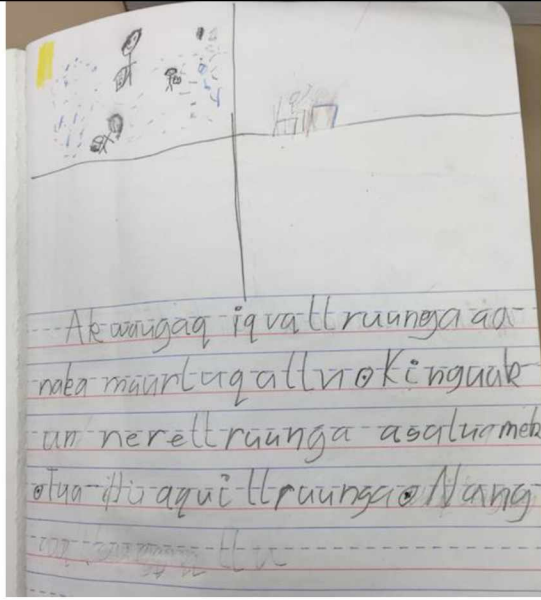 Akwaugaq iqvallruunga aa-
naka maurluqallu. Kinguak-
un nerellruunga asaluamek
. Tua-llu aquillruunga. Nang